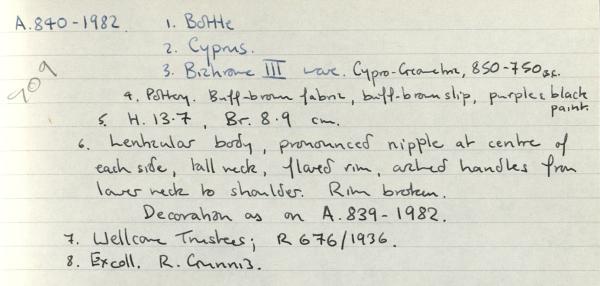 A.840-1982. 1. Bottle
2. Cyprus.
3. Bichrome III ware. Cypro-Geometric, 850-750 BC.
909
4. Pottery. Buff-brown fabric, buff-brown slip, purple & black paint.
5. H. 13.7, Br. 8.9 cm.
6. Lenticular body, pronounced nipple at centre of
each side, tall neck, flared rim, arched handles from
lower neck to shoulder. Rim broken.
Decoration as on A.839-1982.
7. Wellcome Trustees; R 676/1936.
8. Excoll. R. Gunnis.